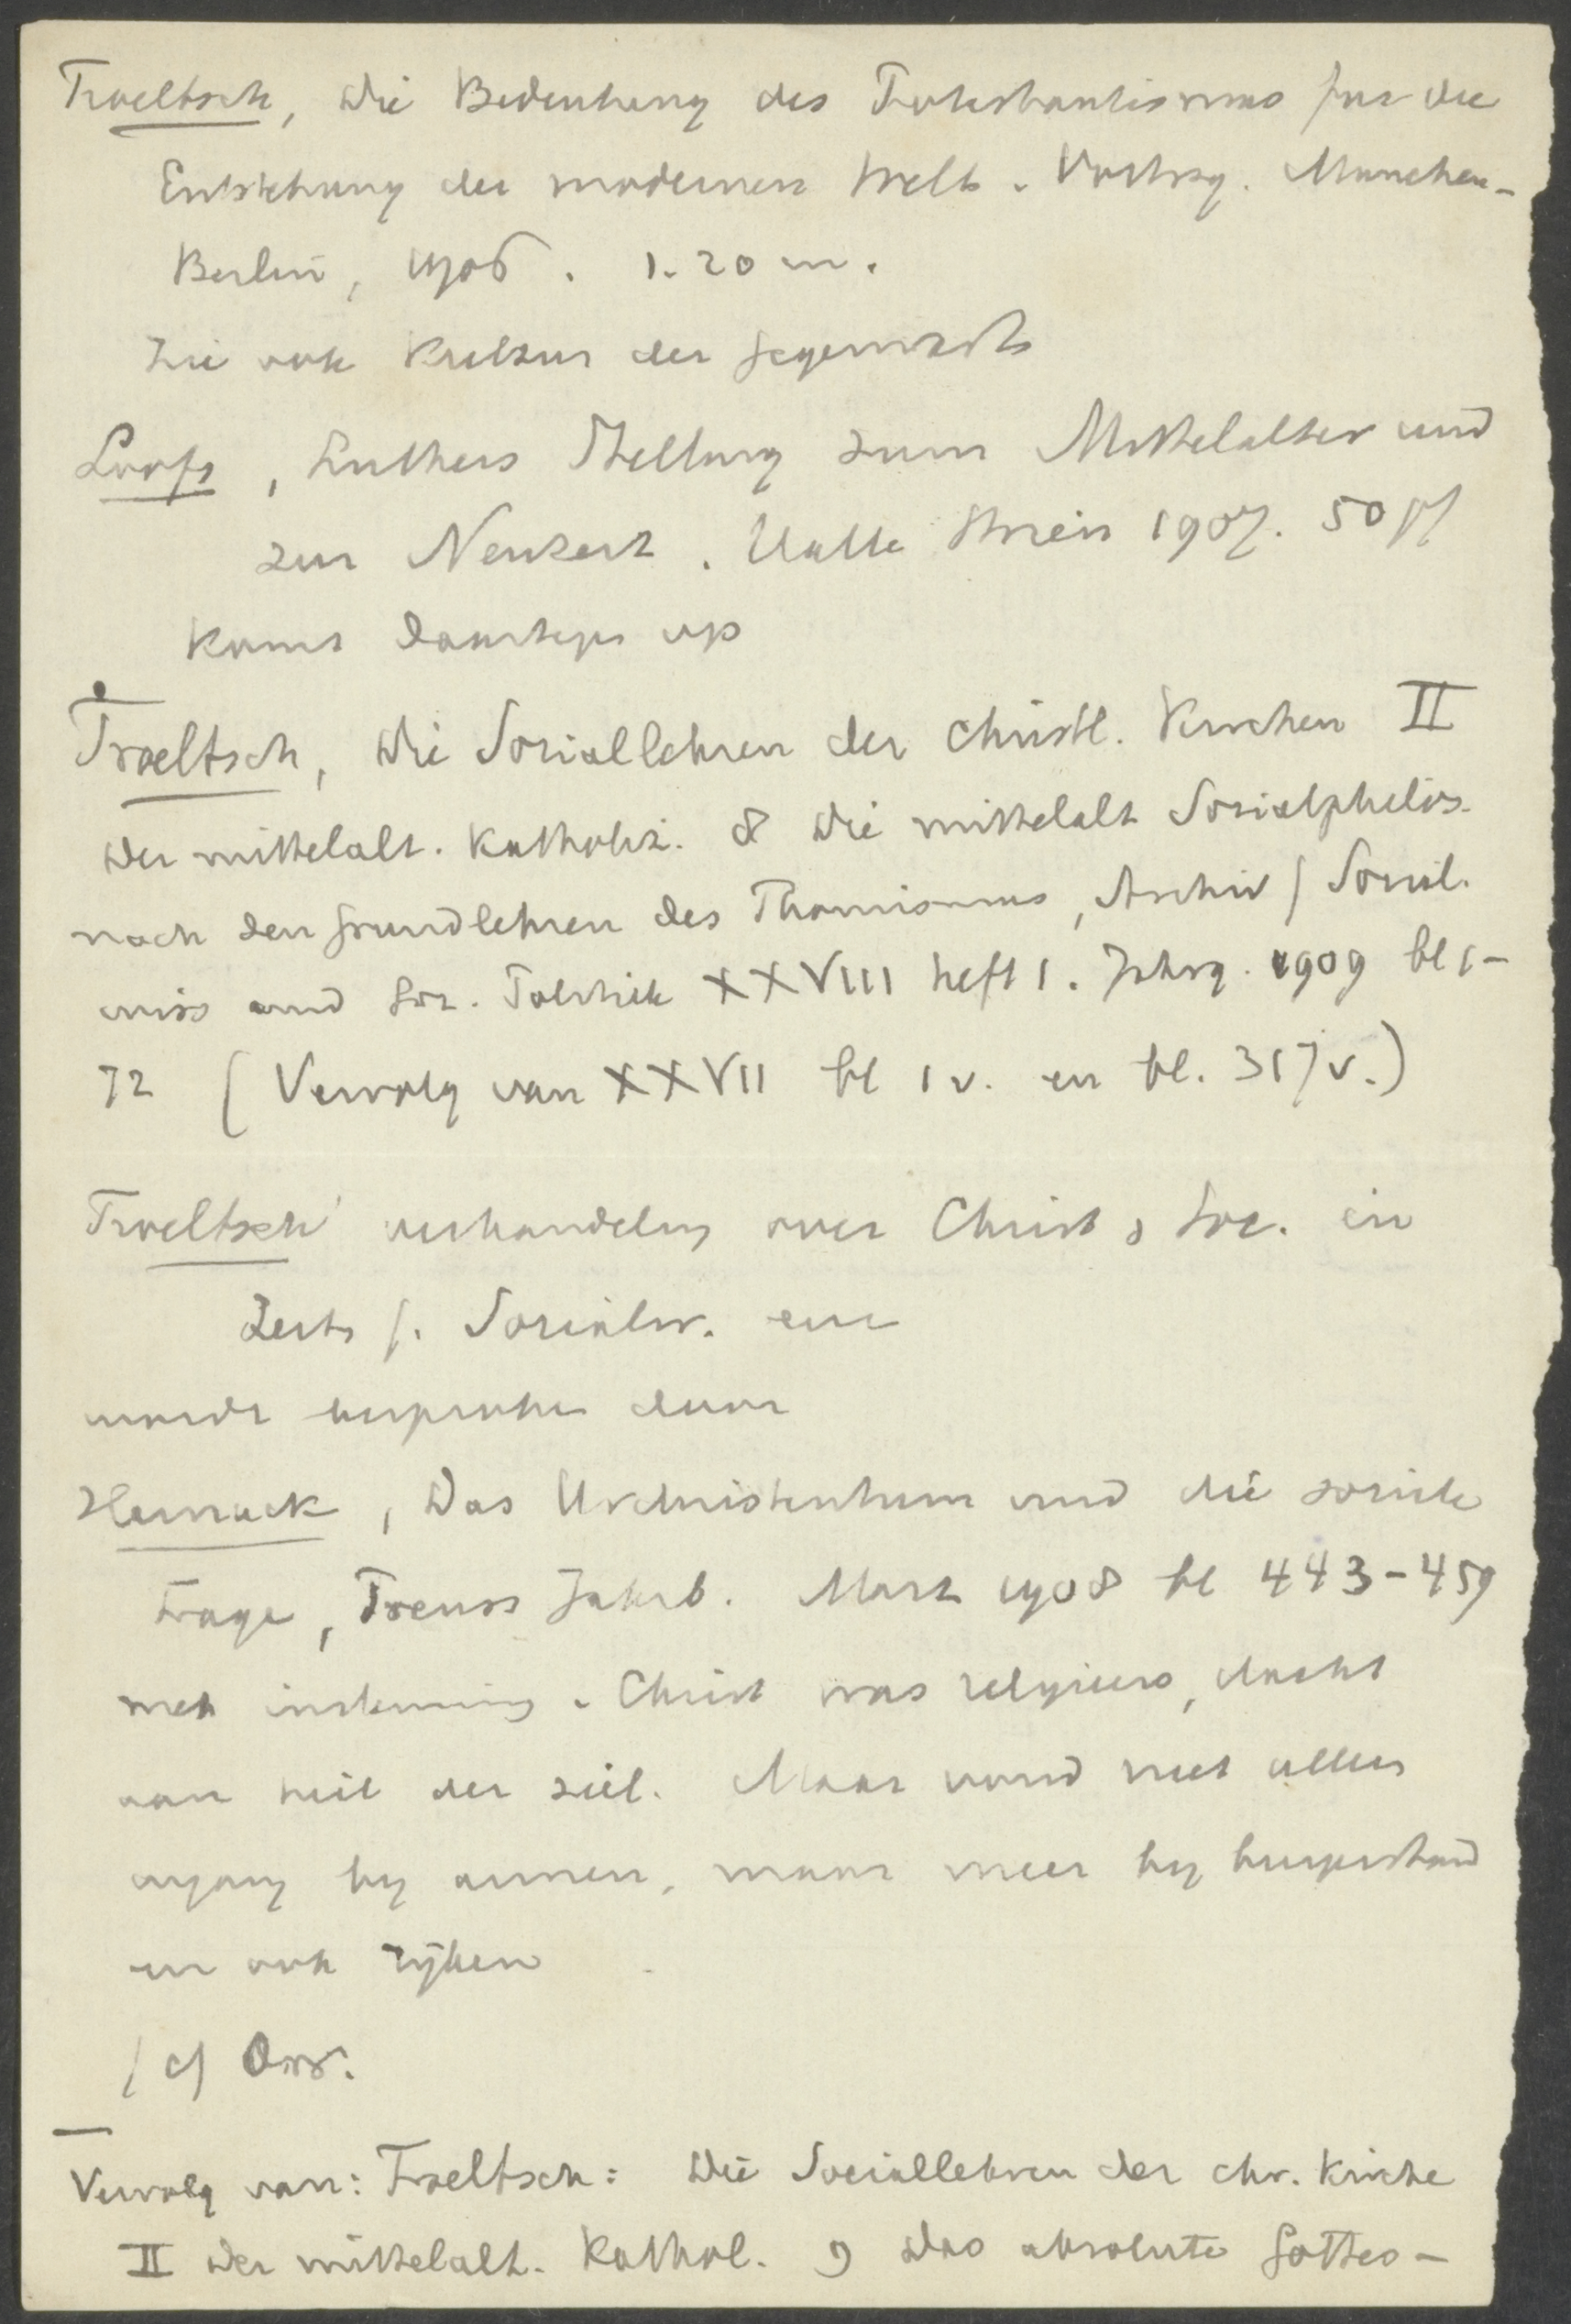 Troeltsch, Die Bedeutung des Protestantismus fur die
Entstehung der modernen Welt. Vortrag. Munchen-
Berlin, 1906. 1.20 m.
Zie ook Kultur der Gegenwart
Loofs, Luthers Stellung zum Mittelalter und
zur Neuzeit. Halle Strien 1907. 50 pf
Komt daartegen op
Troeltsch, Die Soziallehren der christl. Kirchen II
Der mittelalt. Katholiz. 8 Die mittelalt Sozialphilos.
nach den Grundlehren des Thomismus, Archiv f Sozial.
wiss und Soz. Politik XXVIII heft 1. Jahrg. 1909 bl 1-
72 (Vervolg van XXVII bl 1 v. en bl. 317 v.)
Troeltsch' verhandeling over Christ & Soc. in
Zeits f. Sozialw. enz
wordt besproken door
Harnack, Das Urchristenthum und die soziale
Frage, Preuss Jahrb. Marz 1908 bl 443-459
met instemming. Christ was religieus, dacht
aan heil der ziel. Maar vond niet alleen
ingang by armen, maar meer by burgerstand
en ook ryken
/ cf Orr.
Vervolg van: Troeltsch: Die Sociallehren der chr. Kirche
II Der mittelalt. Kathol. 9 Das absolute Gottes-